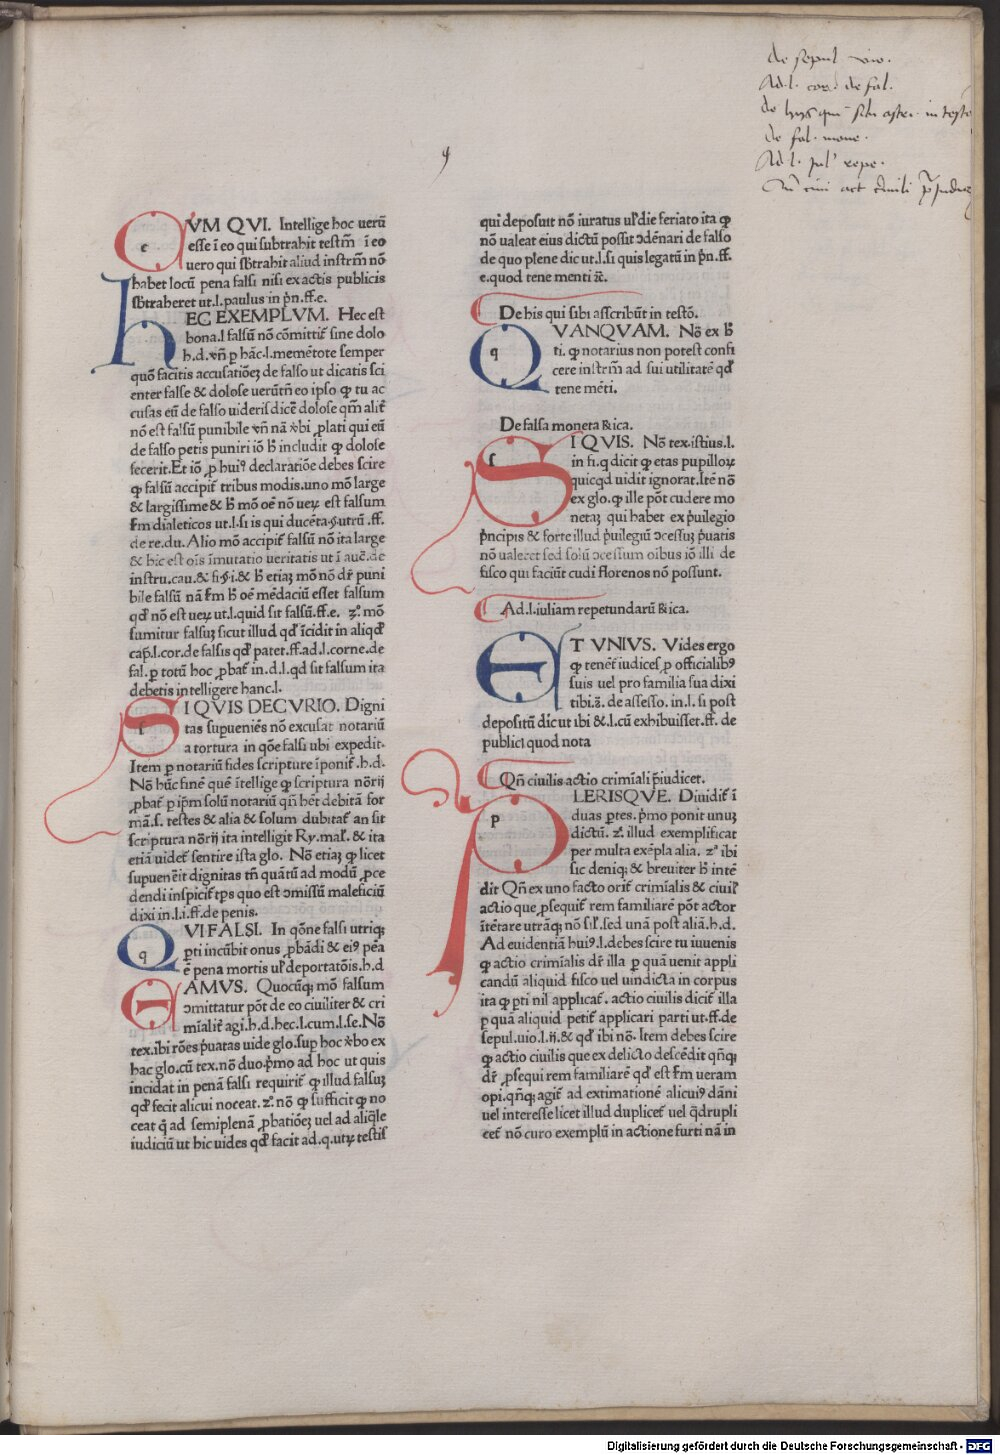 de sepul vio.
Ad.l. cor. de fal.
de hys qui sibi ascr. in testo
de fal. mone.
Ad.l. Jul' repe.
Qn̄ civi act crimili p̄iudicet
CVM QVI. Intellige hoc uerū
esse ī eo qui subtrahit testm̄ ī eo
uero qui sb̄trahit aliud instrm̄ nō
habet locū pena falsi nisi ex actis publicis
sb̄traheret ut.l.paulus in p̄n.ff.e.
hEC EXEMPLVM. Hec est
bona.l falsū nō cōmittit̄ sine dolo
h.d. vn̄ p hāc.l.memētote semper
quō facitis accusatiōeȝ de falso ut dicatis sci
enter false & dolose uerūtn̄ eo ipso ꝙ tu ac
cusas eū de falso uideris dicē dolose qm̄ alit̄
nō est falsū punibile vn̄ nā v̄bi plati qui eū
de falso petis puniri iō h̄ includit ꝙ dolose
fecerit.Et iō p hui⁹ declaratiōe debes scire
ꝙ falsū accipit̄ tribus modis.uno mō large
& largissime & h̄ mō oē nō ueꝝ est falsum
s̄m dialeticos ut.l.si is qui ducēta.§.utrū.ff.
de re.du.Alio mō accipit̄ falsū nō ita large
& hic est oīs īmutatio ueritatis ut ī auc̄.de
instru.cau.& si.§.i.& h̄ etiaȝ mō nō dr̄ puni
bile falsū nā s̄m h̄ oē mēdaciū esset falsum
qd̄ nō est ueꝝ ut.l.quid sit falsū.ff.e. 3.º mō
sumitur falsuȝ sicut illud qd̄ īcidit in aliqd̄
cap̄.l.cor.de falsis qd̄ patet.ff.ad.l.corne.de
fal.p totū hoc pbat̄ in.d.l.qd sit falsum ita
debetis intelligere hanc.l.
SI QVIS DECVRIO. Digni
tas supueniēs nō excusat notariū
a tortura in qōe falsi ubi expedit.
Item p notariū fides scripture īponit̄.h.d.
Nō hūc finē quē ītellige ꝙ scriptura nōrij
pbat̄ p ip̄m solū notariū qn̄ hēt debitā for
mā.s. testes & alia & solum dubitat̄ an sit
scriptura nōrij ita intelligit Ry.mal'. & ita
etiā uidet̄ sentire ista glo. Nō etiaȝ ꝙ licet
supuenēit dignitas tn̄ quātū ad modū pce
dendi inspicit̄ tps quo est ɔmissū maleficiū
dixi in.l.i.ff.de penis.
QVI FALSI. In qōne falsi utriqȝ
pti incūbit onus pbādi & ei⁹ pēa
ē pena mortis ul' deportatōis.h.d
EAMVS. Quocūqȝ mō falsum
ɔmittatur pōt de eo ciuiliter & cri
mīalit̄ agi.h.d.hec.l.cum.l.se.Nō
tex.ibi rōes p̄uatas uide glo.sup hoc v̄bo ex
hac glo.cū tex.nō duo.p̄mo ad hoc ut quis
incidat in penā falsi requirit̄ ꝙ illud falsuȝ
qd̄ fecit alicui noceat. 2.º nō ꝙ sufficit ꝙ no
ceat q̄ ad semiplenā pbatiōeȝ uel ad aliq̄le
iudiciū ut hic uides qd̄ facit ad.q.utꝝ testis
qui deposuit nō iuratus ul' die feriato ita ꝙ
nō ualeat eius dictū possit ɔdēnari de falso
de quo plene dic ut.l.si quis legatū in p̄n.ff.
e.quod tene menti &c̄.
De his qui sibi asscribūt in testō.
QVANQVAM. Nō ex h̄
ti. ꝙ notarius non potest confi
cere instrm̄ ad sui utilitatē qd̄
tene mēti.
De falsa moneta & ica.
SI QVIS. Nō tex.istius.l.
in fi.q dicit ꝙ etas pupilloꝝ
quicqd uidit ignorat.Itē nō
ex glo.ꝙ ille pōt cudere mo
netaȝ qui habet ex p̄uilegio
p̄ncipis & forte illud p̄uilegiū ɔcessuȝ p̄uatis
nō ualeret sed solū ɔcessum oibus iō illi de
fisco qui faciūt cudi florenos nō possunt.
Ad.l.iuliam repetundarū & ica.
ET VNIVS. Vides ergo
ꝙ tenet̄ iudices p officialib⁹
suis uel pro familia sua dixi
tibi.ȝ. de assesso. in.l. si post
depositū dic ut ibi & .l.cū exhibuisset.ff. de
publici quod nota
Qn̄ ciuilis actio crimīali p̄iudicet.
PLERISQVE. Diuidit̄ ī
duas ptes. p̄mo ponit unuȝ
dictū. 2.º illud exemplificat
per multa exēpla alia. 2.º ibi
sic deniqȝ & breuiter h̄ intē
dit Qn̄ ex uno facto orit̄ crimīalis & ciuil'
actio que psequit̄ rem familiarē pōt actor
ītētare utrāqȝ nō sil'.sed unā post aliā.h.d.
Ad euidentiā hui⁹.l.debes scire tu iuuenis
ꝙ actio crimīalis dr̄ illa p quā uenit appli
candū aliquid fisco uel uindicta in corpus
ita ꝙ pti nil applicat̄. actio ciuilis dicit̄ illa
p quā aliquid petit̄ applicari parti ut.ff.de
sepul.uio.l.ij.& qd̄ ibi nō. Item debes scire
ꝙ actio ciuilis que ex delicto descēdit qn̄qȝ
dr̄ psequi rem familiarē qd̄ est s̄m ueram
opi.qn̄qȝ agit̄ ad extimationē alicui⁹ dāni
uel interesse licet illud duplicet̄ uel q̄drupli
cet̄ nō curo exemplū in actione furti nā in
Digitalisierung gefördert durch die Deutsche Forschungsgemeinschaft - DFG